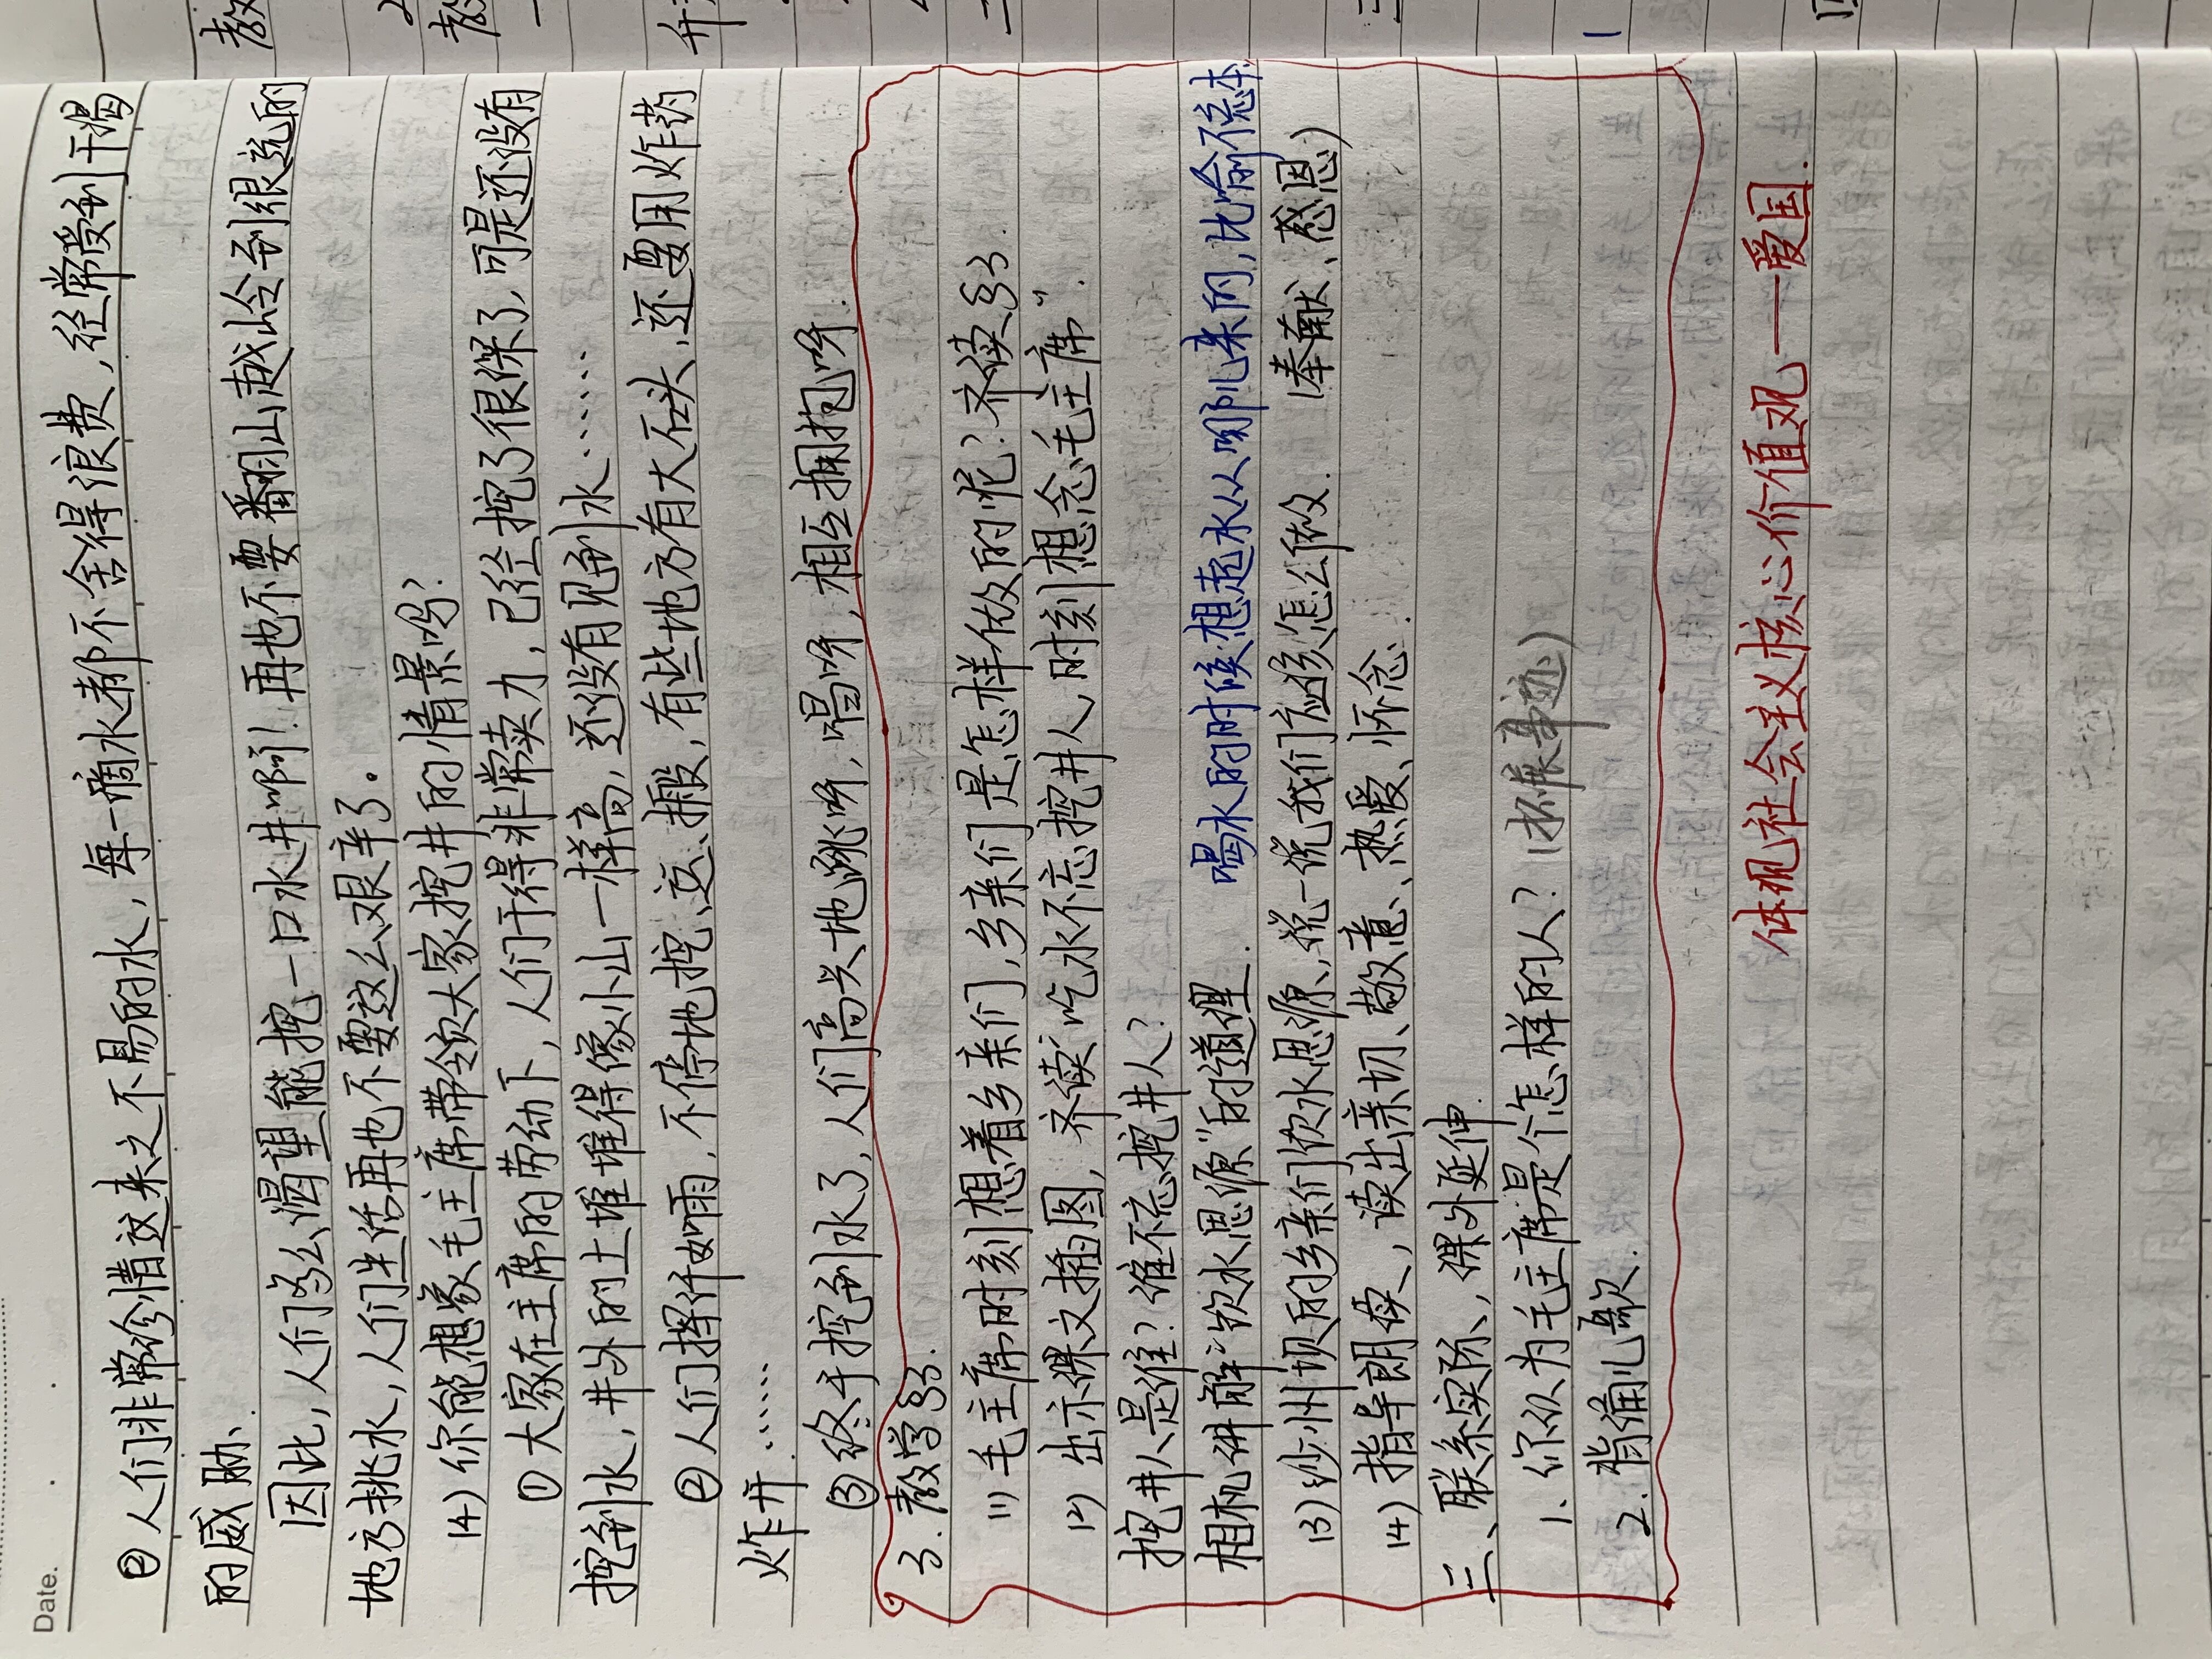 Date.
②人们非常珍惜这来之不易的水，每一滴水都不舍得浪费，经常受到干渴
的威胁、
因此，人们多么渴望能挖一口水井啊！再也不要翻山越岭到很远的
地方挑水，人们生活再也不要这么艰辛了。
(4)你能想象毛主席带领大家挖井的情景吗？
①大家在主席的劳动下，人们干得非常卖力，已经挖了很深了，可是还没有
挖到水，井外的土堆堆得像小山一样高，还没有见到水……
②人们挥汗如雨，不停地挖、运、搬，有些地方有大石头，还要用炸药
炸开……
③终于挖到水了，人们高兴地跳呀，唱呀，相互拥抱呀.
3.教学§3.
(1)毛主席时刻想着乡亲们，乡亲们是怎样做的呢？齐读§3.
(2)出示课文插图，齐读“吃水不忘挖井人，时刻想念毛主席”.
挖井人是谁？谁不忘挖井人？
相机讲解“饮水思源”的道理. 喝水的时候想起水从哪儿来的，比喻不忘本.
(3)沙州坝的乡亲们饮水思源，说一说我们应该怎么做. (奉献、感恩)
(4)指导朗读，读出亲切、敬意、热爱、怀念.
三、联系实际，课外延伸.
1.你认为毛主席是个怎样的人？(拓展事迹)
2.背诵儿歌.
体现社会主义核心价值观——爱国.